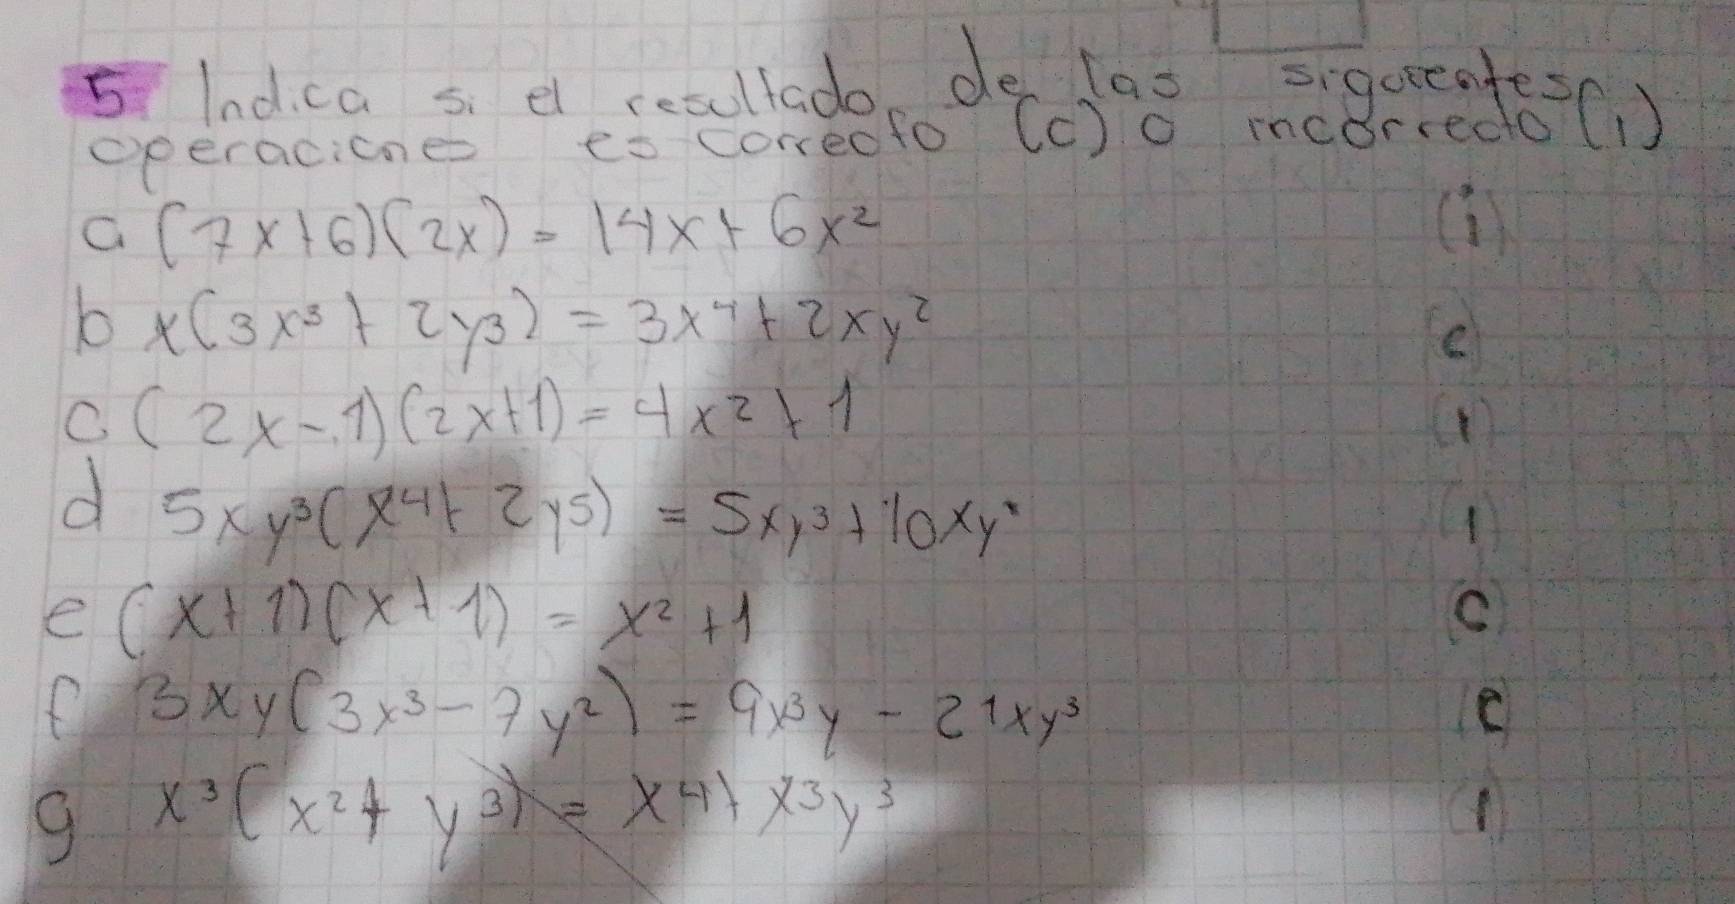 5 Indica si el resultado de las siguientes
operaciones es correcto (c) o incorrecto (i)
a (7x+6)(2x) = 14x + 6x² (i)
b x(3x³ + 2y3) = 3x⁴ + 2xy² (c)
c (2x-1)(2x+1) = 4x² + 1 (1)
d 5xy³(x4+ 2y5) = 5xy³ + 10xy (1)
e (x+1)(x+1) = x² +1 (C)
f 3xy(3x³ - 7y²) = 9x³y - 21xy³ (C)
g x³(x²+ y³) = x4+ x³y³ (1)